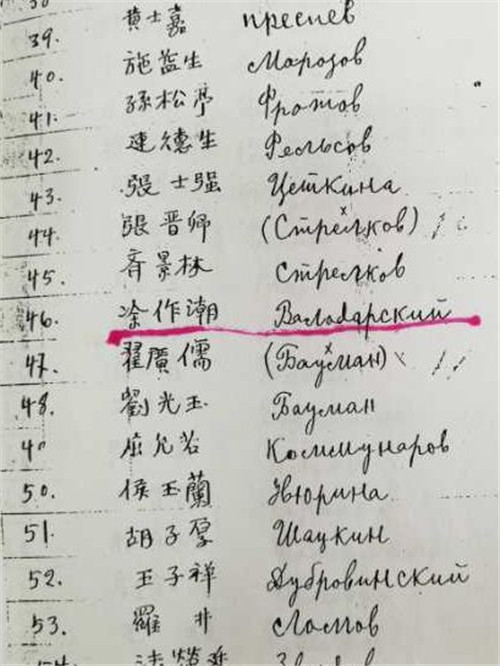 39. 黄士嘉 преснев
40. 施益生 Марозов
41. 孫松亭 Фротов
42. 連德生 Рельсов
43. 張士强 Цеткина
44. 張晋卿 (Стрелков)
45. 齐景林 Стрелков
46. 涂作潮 Валодарский
47. 翟廣儒 (Бауман)
48. 劉光玉 Бауман
49 屈允若 Коммунаров
50. 侯玉蘭 Звюрина
51. 胡子厚 Шаукин
52. 王子祥 Дубровинский
53. 羅井 Ломов